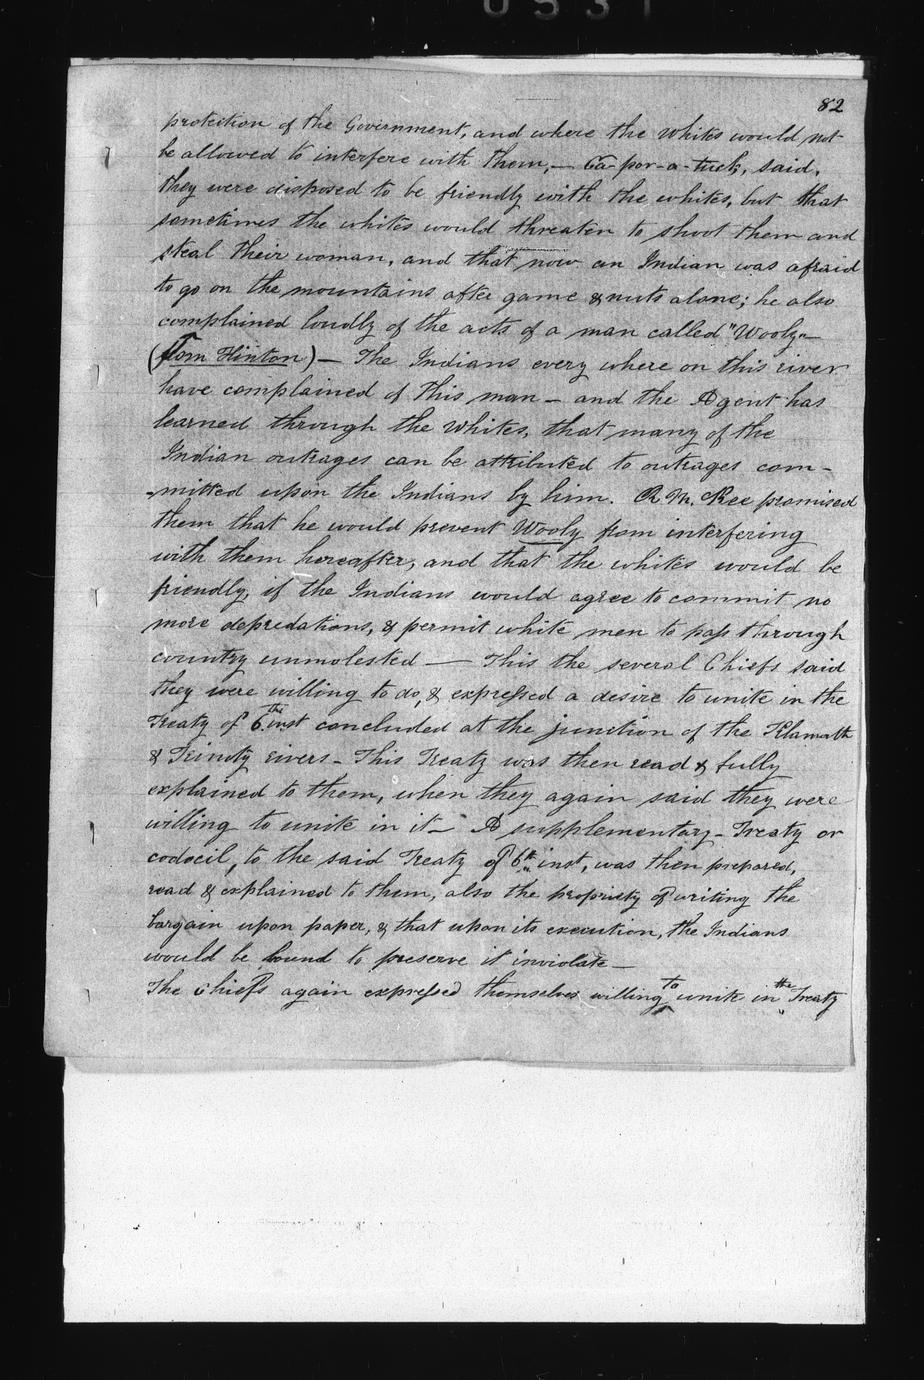 82
protection of the Government, and where the whites would not
be allowed to interfere with them,— Ca-por-a-tuck, said,
they were disposed to be friendly with the whites, but that
sometimes the whites would threaten to shoot them and
steal their woman, and that now an Indian was afraid
to go on the mountains after game & nuts alone; he also
complained loudly of the acts of a man called "Wooly"
(Tom Hinton) — The Indians every where on this river
have complained of this man — and the Agent has
learned through the whites, that many of the
Indian outrages can be attributed to outrages com-
-mitted upon the Indians by him. R McKee promised
them that he would prevent Wooly from interfering
with them hereafter, and that the whites would be
friendly, if the Indians would agree to commit no
more depredations, & permit white men to pass through
country unmolested — This the several Chiefs said
they were willing to do, & expressed a desire to unite in the
Treaty of 6th inst concluded at the junction of the Klamath
& Trinity rivers - This Treaty was then read & fully
explained to them, when they again said they were
willing to unite in it — A supplementary - Treaty or
codocil, to the said Treaty of 6th inst, was then prepared,
read & explained to them, also the propriety of writing the
bargain upon paper, & that upon its execution, the Indians
would be bound to preserve it inviolate —
The chiefs again expressed themselves willing to unite in the Treaty